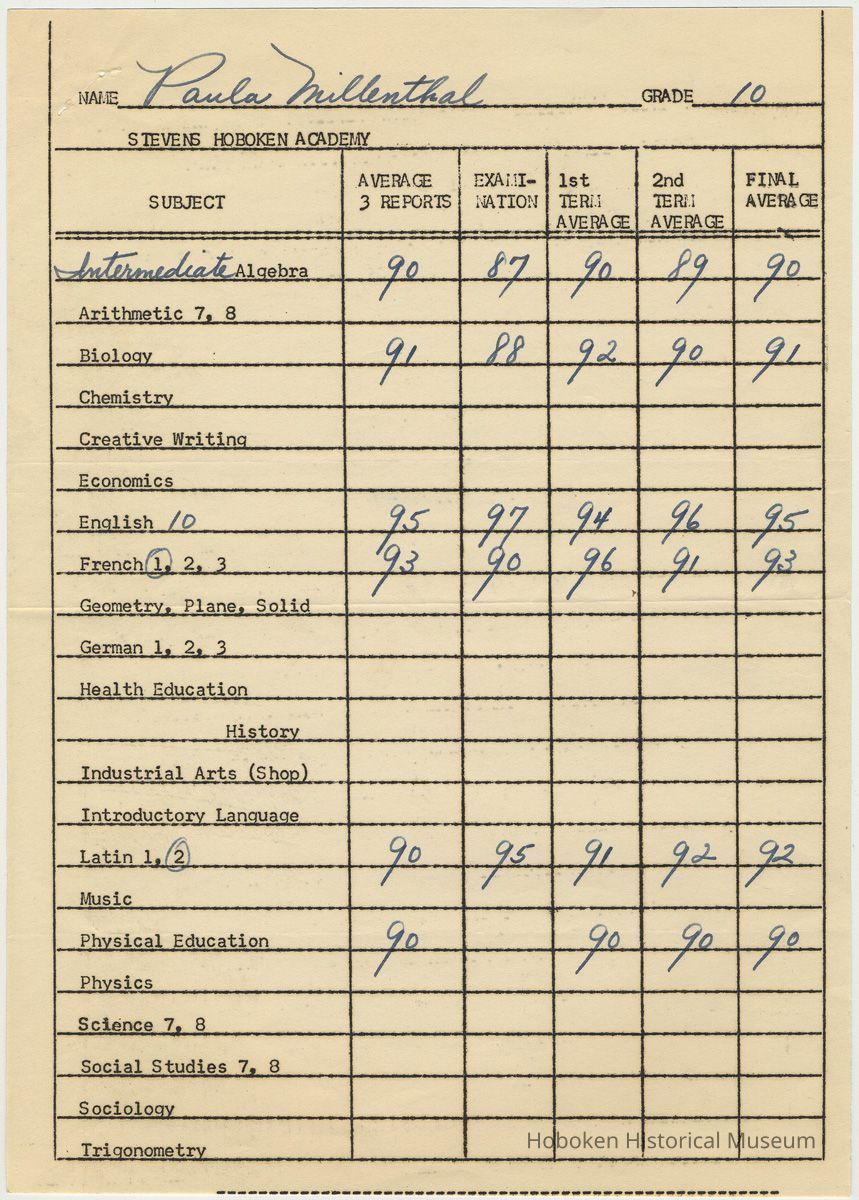 NAME Paula Millenthal GRADE 10
STEVENS HOBOKEN ACADEMY
SUBJECT AVERAGE 3 REPORTS EXAMI-NATION 1st TERM AVERAGE 2nd TERM AVERAGE FINAL AVERAGE
Intermediate Algebra 90 87 90 89 90
Arithmetic 7, 8
Biology 91 88 92 90 91
Chemistry
Creative Writing
Economics
English 10 95 97 94 96 95
French 1, 2, 3 93 90 96 91 93
Geometry, Plane, Solid
German 1, 2, 3
Health Education
History
Industrial Arts (Shop)
Introductory Language
Latin 1, 2 90 95 91 92 92
Music
Physical Education 90 90 90 90
Physics
Science 7, 8
Social Studies 7, 8
Sociology
Trigonometry
Hoboken Historical Museum